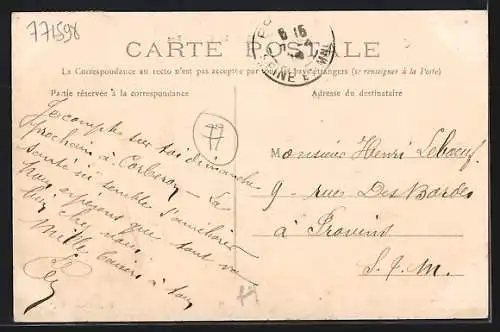 771598
CARTE POSTALE
8 15
SEINE E
La Correspondance au recto n'est pas acceptée par tous les pays étrangers (se renseigner à la Poste)
Partie réservée à la correspondance
Adresse du destinataire
77
Je compte sur toi dimanche
prochain à Corberon - La
santé ici semble s'améliorer
nous espérons que tout va
bien chez vous.
Mille baisers à tous
Monsieur Henri Leboeuf
9 - rue Des Bordes
à Provins
S. &. M.